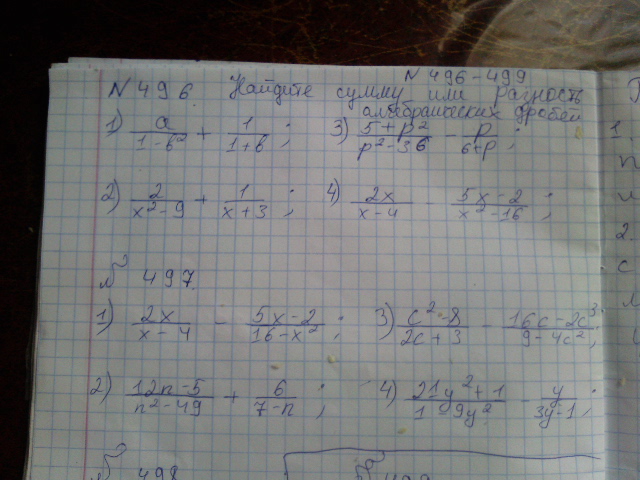 N 496 - 499
N 496. Найдите сумму или разность
алгебраических дробей
1) a/(1-b²) + 1/(1+b); 3) (5+p²)/(p²-36) - p/(6+p);
2) 2/(x²-9) + 1/(x+3); 4) 2x/(x-4) - (5x-2)/(x²-16);
N 497.
1) 2x/(x-4) - (5x-2)/(16-x²); 3) (c²-8)/(2c+3) - (16c-2c³)/(9-4c²);
2) (12n-5)/(n²-49) + 6/(7-n); 4) (21y²+1)/(1-9y²) - y/(3y-1);
N 498
1.
2.